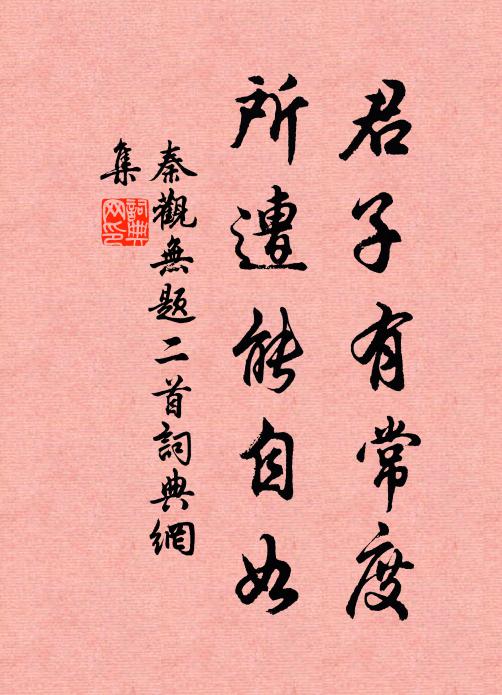 君子有常度
所遭能自如
秦觀無題二首詞典網
集
詞典
网印